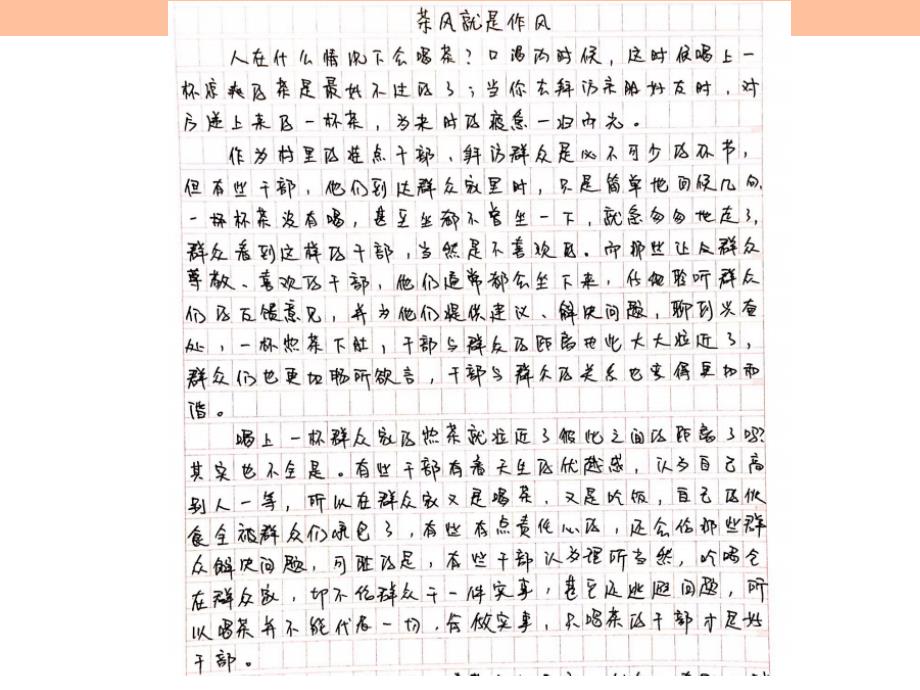 茶风就是作风
人在什么情况下会喝茶？口渴的时候，这时候喝上一
杯凉爽的茶是最好不过的了；当你去拜访亲朋好友时，对
方递上来的一杯茶，为来时的疲惫一扫而光。
作为村里的驻点干部，拜访群众是必不可少的环节，
但有些干部，他们到达群众家里时，只是简单地问候几句
一杯杯茶没有喝，甚至坐都不曾坐一下，就急匆匆地走了，
群众看到这样的干部，当然是不喜欢的。而那些让及群众
尊敬、喜欢的干部，他们通常都会坐下来，仔细聆听群众
们的反馈意见，并为他们提供建议、解决问题，聊到兴奋
处，一杯热茶下肚，干部与群众的距离也大大拉近了，
群众们也更加畅所欲言，干部与群众的关系也变得更加和
谐。
喝上一杯群众家的热茶就拉近了彼此之间的距离了吗？
其实也不全是。有些干部有着天生的优越感，认为自己高
别人一等，所以在群众家又是喝茶，又是吃饭，自己的伙
食全被群众们承包了，有些有点责任心的，还会给那些群
众解决问题，可耻的是，有些干部认为理所当然，吃喝全
在群众家，却不给群众干一件实事，甚至还逃避问题，所
以喝茶并不能代表一切，会做实事，只喝茶的干部才是好
干部。